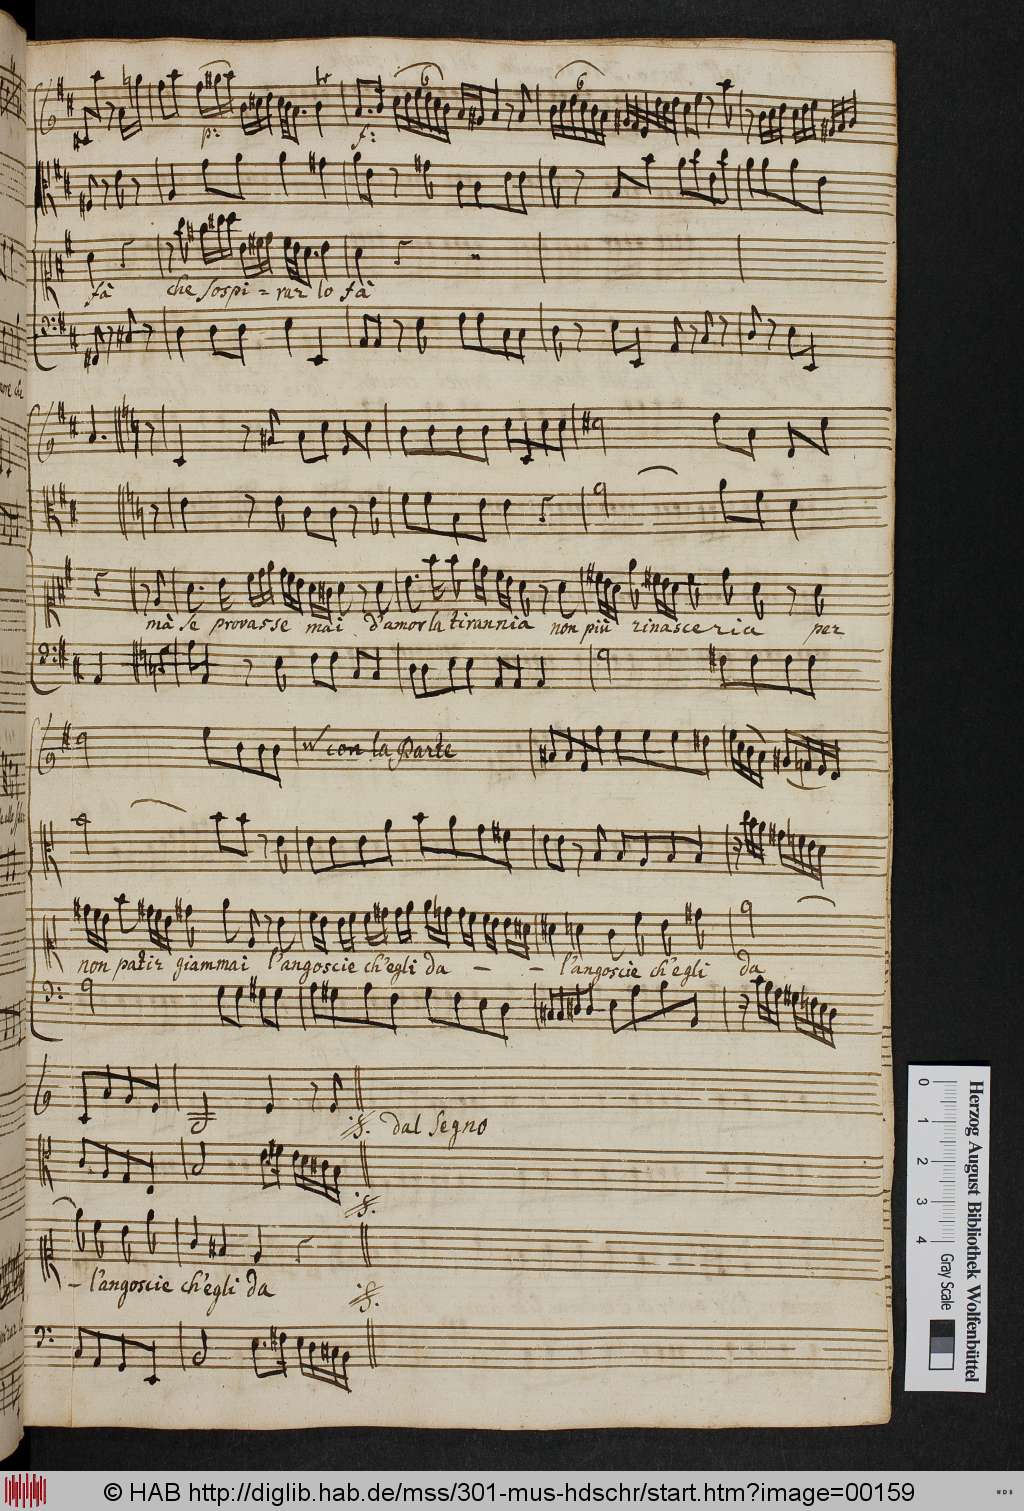 p:
f:
6
6
fà che sospi = rar lo fà
mà se provasse mai d'amor la tirannia non più rinasceria per
con la Parte
non patir giammai l'angoscie ch'egli da - - l'angoscie ch'egli da
dal Segno
- l'angoscie ch'egli da
Herzog August Bibliothek Wolfenbüttel
0 1 2 3 4
Gray Scale
© HAB http://diglib.hab.de/mss/301-mus-hdschr/start.htm?image=00159